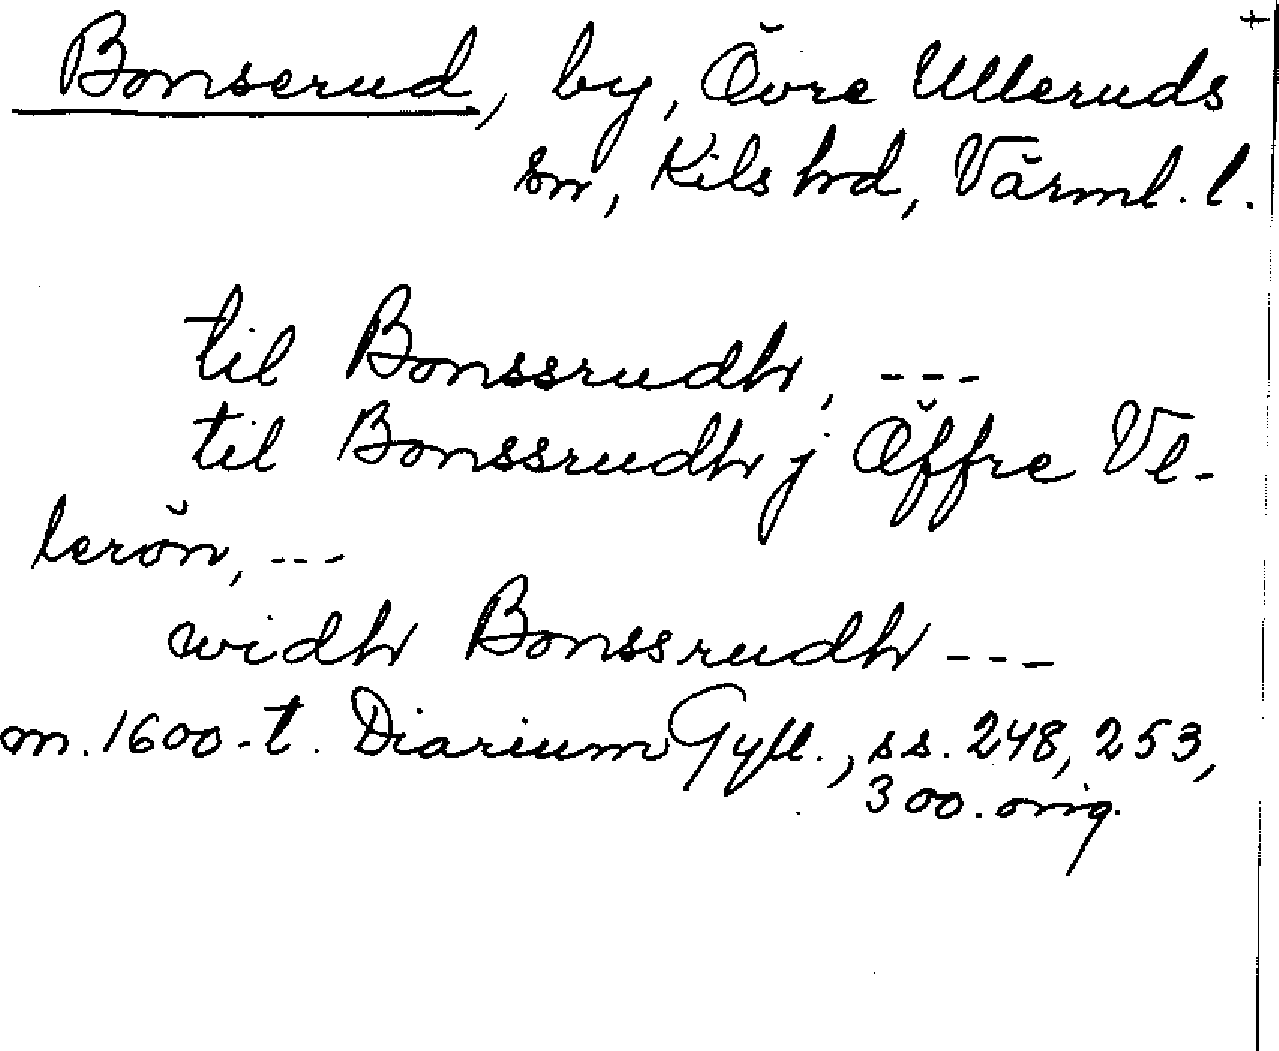 Bonserud, by, Övre Ulleruds
sn, Kils hd, Värml. l.
til Bonssrudh, ---
til Bonssrudh j Öffre Vl-
lerön, ---
widh Bonssrudh ---
m. 1600-t. Diarium Gyll., ss. 248, 253,
300. orig.